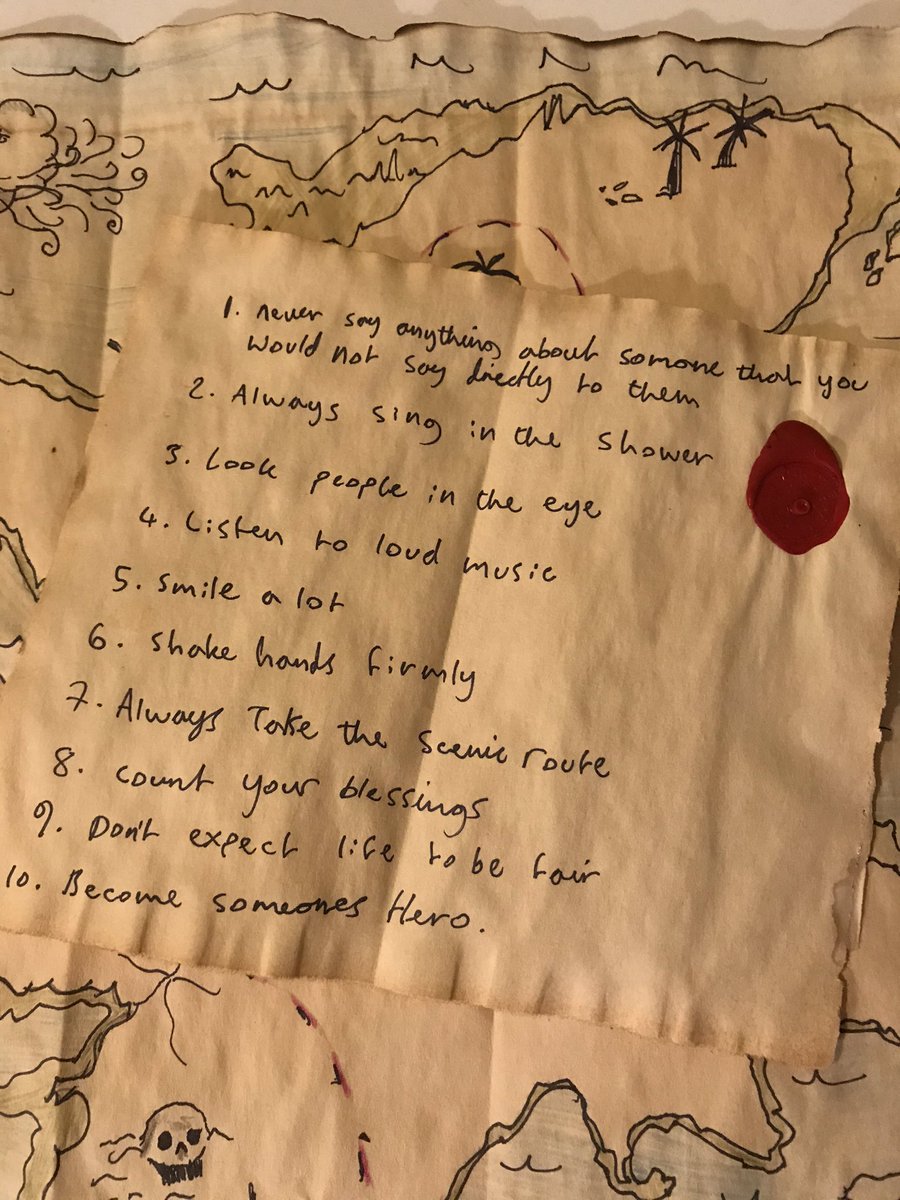 1. never say anything about somone that you
would not say directly to them
2. Always sing in the shower
3. Look people in the eye
4. Listen to loud music
5. smile a lot
6. shake hands firmly
7. Always Take the scenic route
8. count your blessings
9. Don't expect life to be fair
10. Become someones Hero.